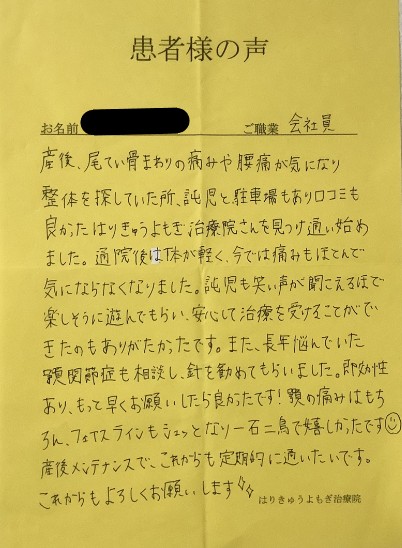 患者様の声
お名前 ご職業 会社員
産後、尾てい骨まわりの痛みや腰痛が気になり
整体を探していた所、託児と駐車場もあり口コミも
良かったはりきゅうよもぎ治療院さんを見つけ通い始め
ました。通院後は体が軽く、今では痛みもほとんで
気にならなくなりました。託児も笑い声が聞こえるほで
楽しそうに遊んでもらい、安心して治療を受けることがで
きたのもありがたかったです。また、長年悩んでいた
顎関節症も相談し、針を勧めてもらいました。即効性
あり、もって早くお願いしたら良かったです!顎の痛みはもち
ろん、フェイスラインもシュッとなり一石二鳥で嬉しかったです
産後メンテナンスで、これからも定期的に通いたいです。
これからもよろしくお願いします
はりきゅうよもぎ治療院